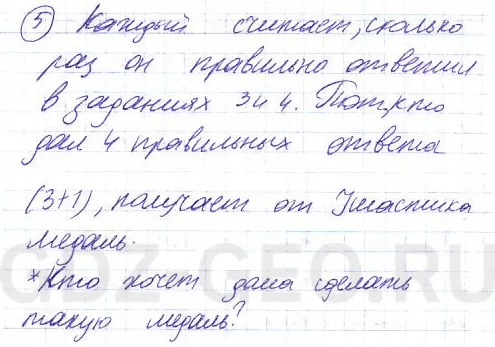 5 Каждый считает, сколько
раз он правильно ответил
в заданиях 3 и 4. Тот, кто
дал 4 правильных ответа
(3+1), получает от Ушастика
медаль.
*Кто хочет дома сделать
такую медаль?
GDZ-GEO.RU